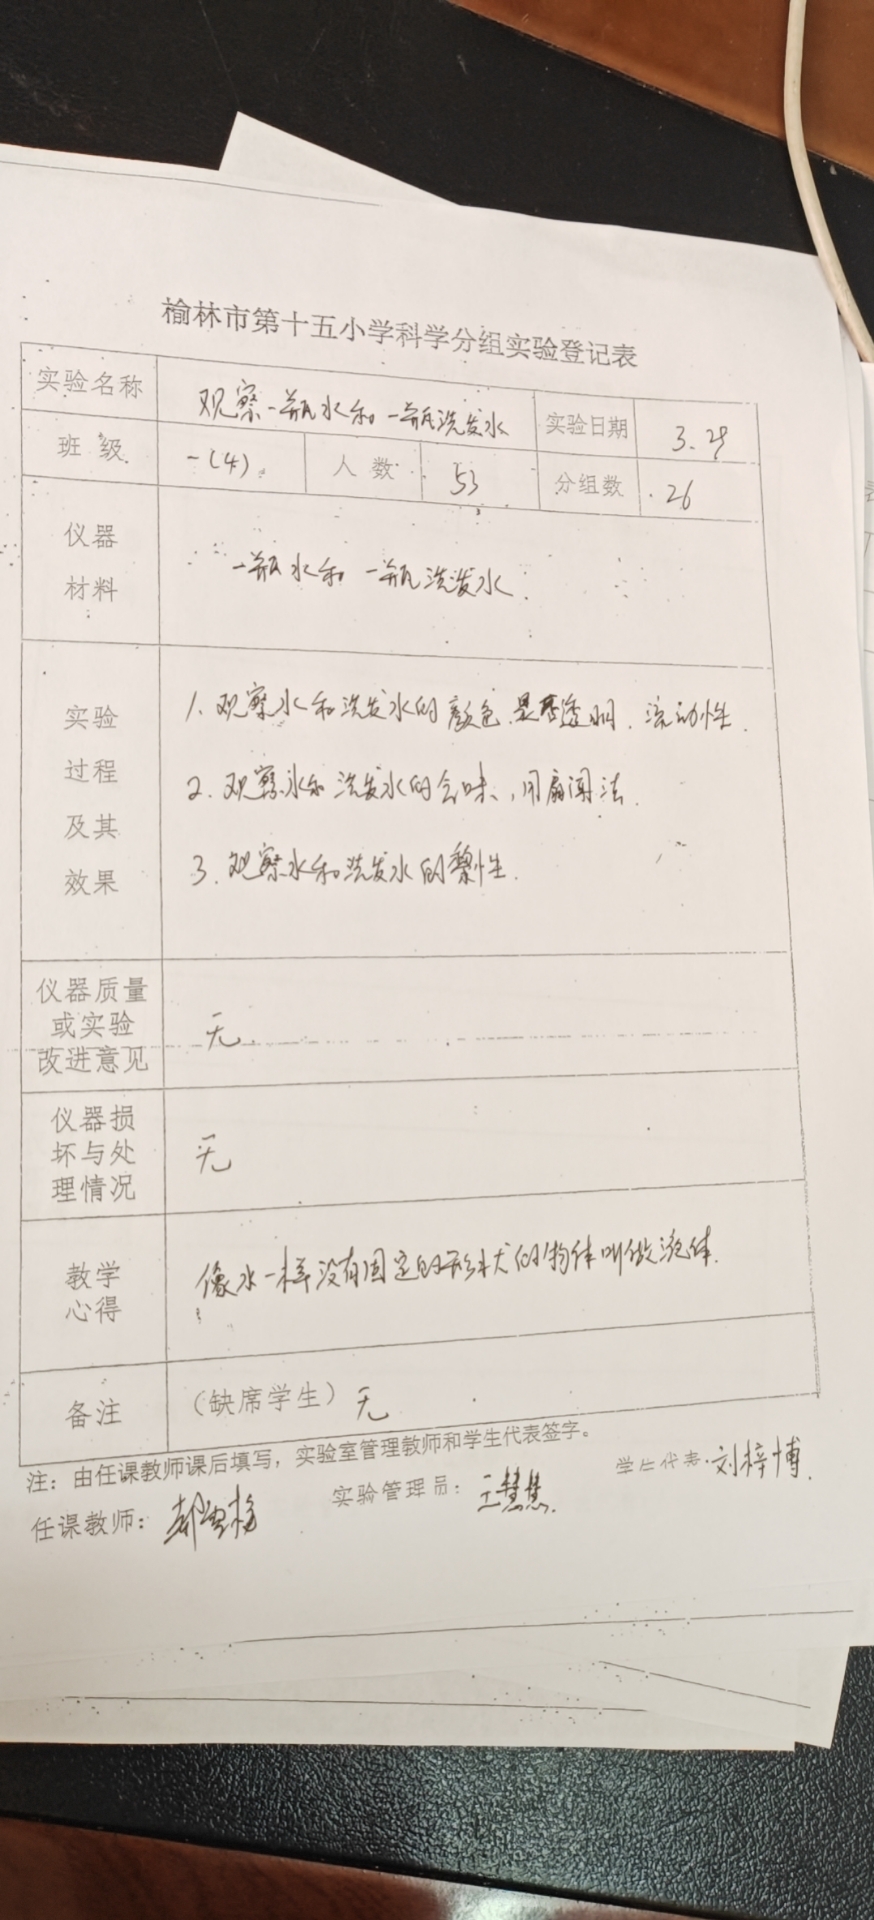 榆林市第十五小学科学分组实验登记表
实验名称 观察一瓶水和一瓶洗发水 实验日期 3.29
班级 一(4) 人数 53 分组数 26
仪器
材料
一瓶水和一瓶洗发水
实验
过程
及其
效果
1.观察水和洗发水的颜色.是否透明.流动性.
2.观察水和洗发水的气味,用扇闻法.
3.观察水和洗发水的黎性.
仪器质量
或实验
改进意见
无
仪器损
坏与处
理情况
无
教学
心得
像水一样没有固定的形状的物体叫做液体.
备注 (缺席学生) 无
注:由任课教师课后填写,实验室管理教师和学生代表签字。
任课教师: 实验管理员:王慧慧. 学生代表.刘梓博.